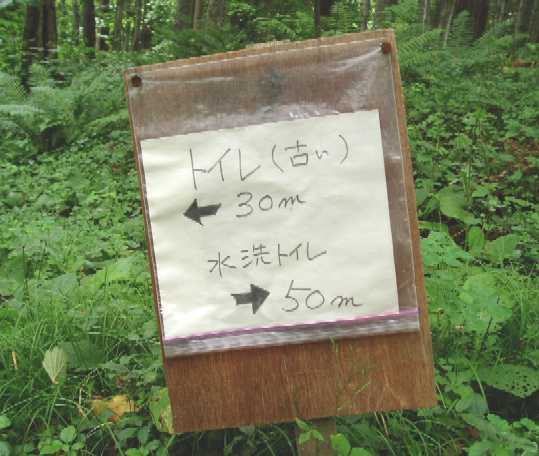 トイレ(古い)
← 30m
水洗トイレ
→ 50m